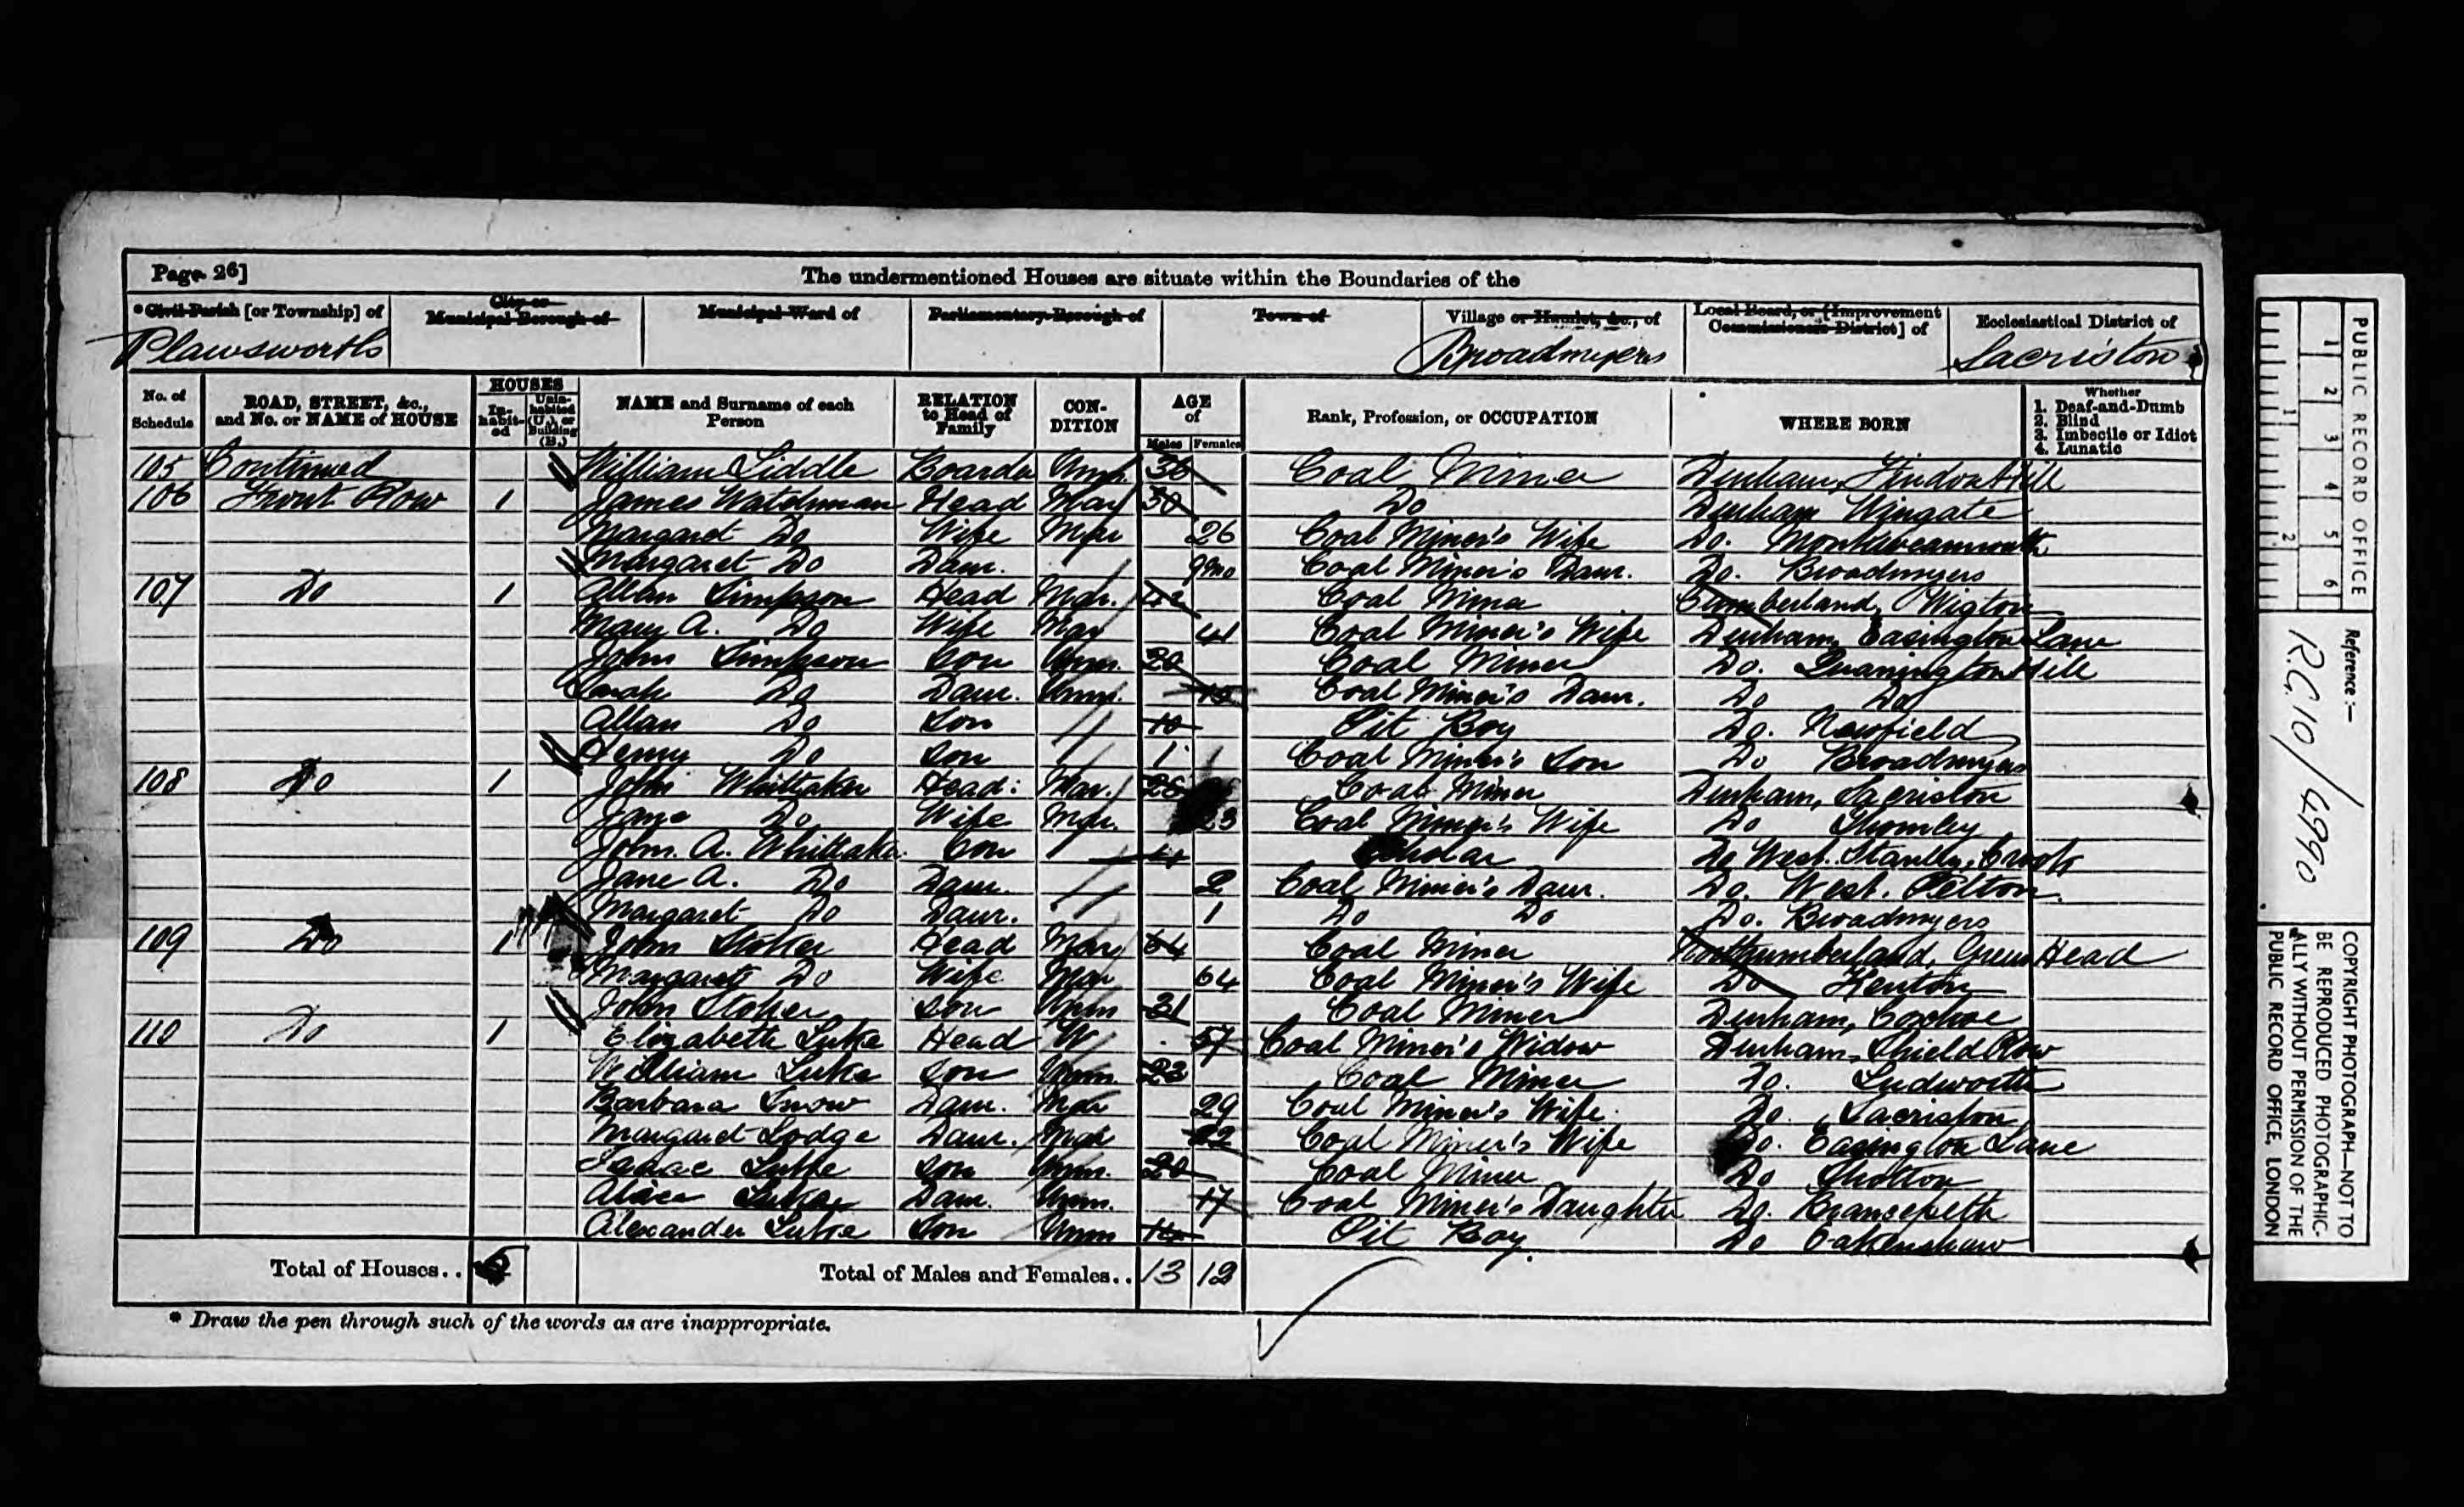 Page. 26]
The undermentioned Houses are situate within the Boundaries of the
*Civil Parish [or Township] of
City or Municipal Borough of
Municipal Ward of
Parliamentary Borough of
Town of
Village or Hamlet, &c., of
Local Board, or [Improvement Commissioners District] of
Ecclesiastical District of
Plawsworth
Broadmyers
Sacriston
No. of Schedule
ROAD, STREET, &c., and No. or NAME of HOUSE
HOUSES
In-habit-ed
Unin-habited (U.) or Building (B.)
NAME and Surname of each Person
RELATION to Head of Family
CON-DITION
AGE of
Males Females
Rank, Profession, or OCCUPATION
WHERE BORN
Whether
1. Deaf-and-Dumb
2. Blind
3. Imbecile or Idiot
4. Lunatic
105 Continued William Liddle Boarder Unm. 36 Coal Miner Durham, Hill
106 Front Row 1 James Watchman Head Mar 30 Do Durham Wingate
Margaret Do Wife Mar 26 Coal Miner's Wife Do. Monkwearmouth
Margaret Do Daur. 9mo Coal Miner's Daur. Do. Broadmyers
107 Do 1 Allan Simpson Head Mar. Coal Miner Cumberland, Wigton
Mary A. Do Wife Mar 41 Coal Miner's Wife Durham, Easington Lane
John Simpson Son Unm. 20 Coal Miner Do. Quarrington Hill
Sarah Do Daur. Unm. Coal Miner's Daur. Do Do
Allan Do Son 10 Pit Boy Do. Newfield
Henry Do Son 1 Coal Miner's Son Do Broadmyers
108 Do 1 John Whittaker Head: Mar. 26 Coal Miner Durham, Sacriston
Jane Do Wife Mar. 23 Coal Miner's Wife Do Thornley
John. A. Whittaker Son 4 Scholar Do West. Stanley, Crook
Jane A. Do Daur. 2 Coal Miner's Daur. Do. West. Pelton
Margaret Do Daur. 1 Do Do Do. Broadmyers
109 Do 1 John Stoker Head Mar 64 Coal Miner Northumberland, Green Head
Margaret Do Wife Mar 64 Coal Miner's Wife Do Kenton
John Stoker Son Unm 31 Coal Miner Durham, Coxhoe
110 Do 1 Elizabeth Luke Head W 57 Coal Miner's Widow Durham, Shield Row
William Luke Son Unm. 23 Coal Miner Do. Ludworth
Barbara Snow Daur. Mar 29 Coal Miner's Wife. Do. Sacriston
Margaret Lodge Daur. Mar 22 Coal Miner's Wife Do. Easington Lane
Isaac Luke Son Unm. 20 Coal Miner Do Shotton
Alice Luke Daur. Unm. 17 Coal Miner's Daughter Do. Brancepeth
Alexander Luke Son Unm Pit Boy. Do Oakenshaw
Total of Houses.. 5 Total of Males and Females.. 13 12
* Draw the pen through such of the words as are inappropriate.
PUBLIC RECORD OFFICE
1 2 3 4 5 6
1 2
Reference:-
R.G. 10/4990
COPYRIGHT PHOTOGRAPH—NOT TO
BE REPRODUCED PHOTOGRAPHIC-
ALLY WITHOUT PERMISSION OF THE
PUBLIC RECORD OFFICE, LONDON